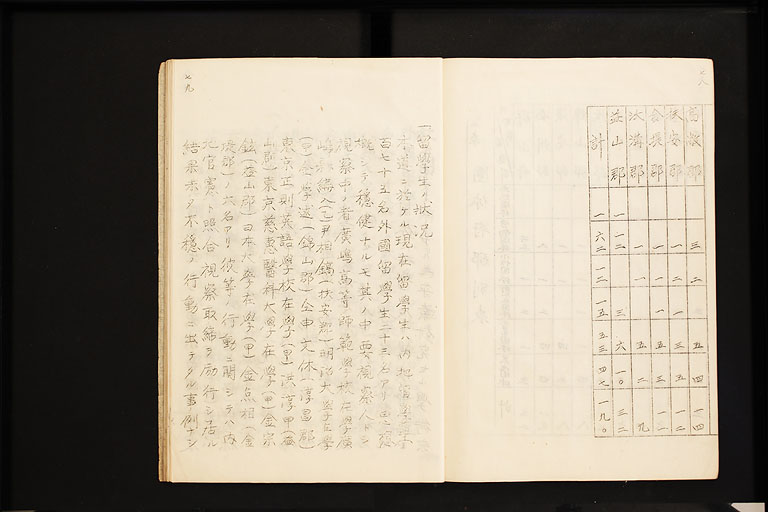 七八
高敞郡 三 二 五 四 一四
扶安郡 一 二 一 三 五 一二
金堤郡 一 一 一 五 三 一一
沃溝郡 一 一 五 二 九
益山郡 一 一二 三 六 一〇 三二
計 一 六三 一二 一五 五三 四七 一九〇
七九
一、留學生ノ狀況
本道ニ於ケル現在留學生ハ內地留學生
百七十五名外國留學生二十三名アリ
概シテ穩健ナルモ其ノ中要視察人トシ
視察中ノ者廣嶋高等師範學校在學
(乙)尹相鎬(扶安郡)明治大學在學
(甲)(錦山郡)仝申文休(淳昌郡)
東京正則英語學校在學(甲)洪淳甲(益
山郡)東京慈惠醫科大學在學(甲)金宗
鉉(益山郡)日本大學在學(甲)金點相(金
堤郡)ノ六名アリ彼等ノ行動ニ關シテハ內
地官憲ト照合視察取締ヲ勵行シ居ル
結果未タ不穩ノ行動ニ出テタル事例ナシ